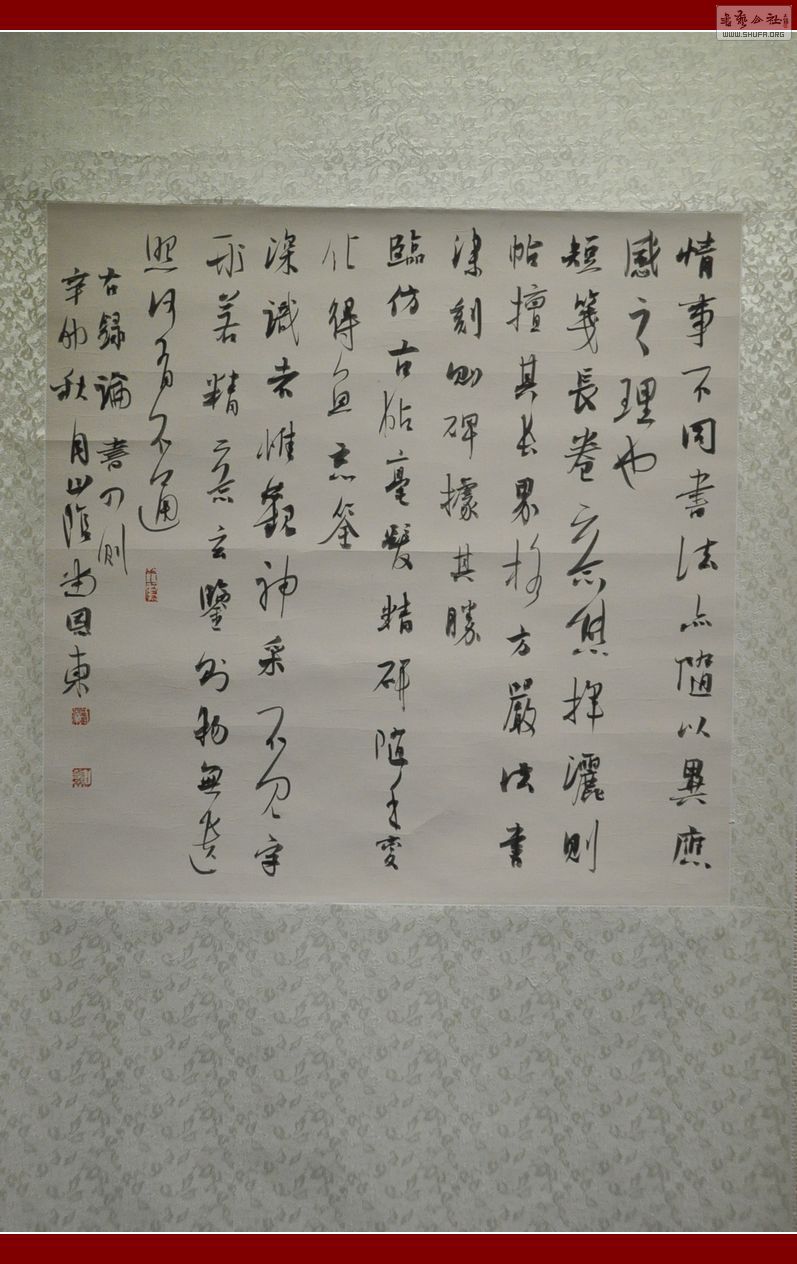 情事不同書法亦隨以異應
感之理也
短箋長卷意態揮灑則
帖擅其長界格方嚴法書
深刻則碑據其勝
臨仿古帖毫髮精研隨手變
化得魚忘筌
深識者惟觀神采不見字
形若精意玄鑒則物無遺
照何有不通
右録論書四則
辛卯秋月山陰因東
書藝公社
WWW.SHUFA.ORG